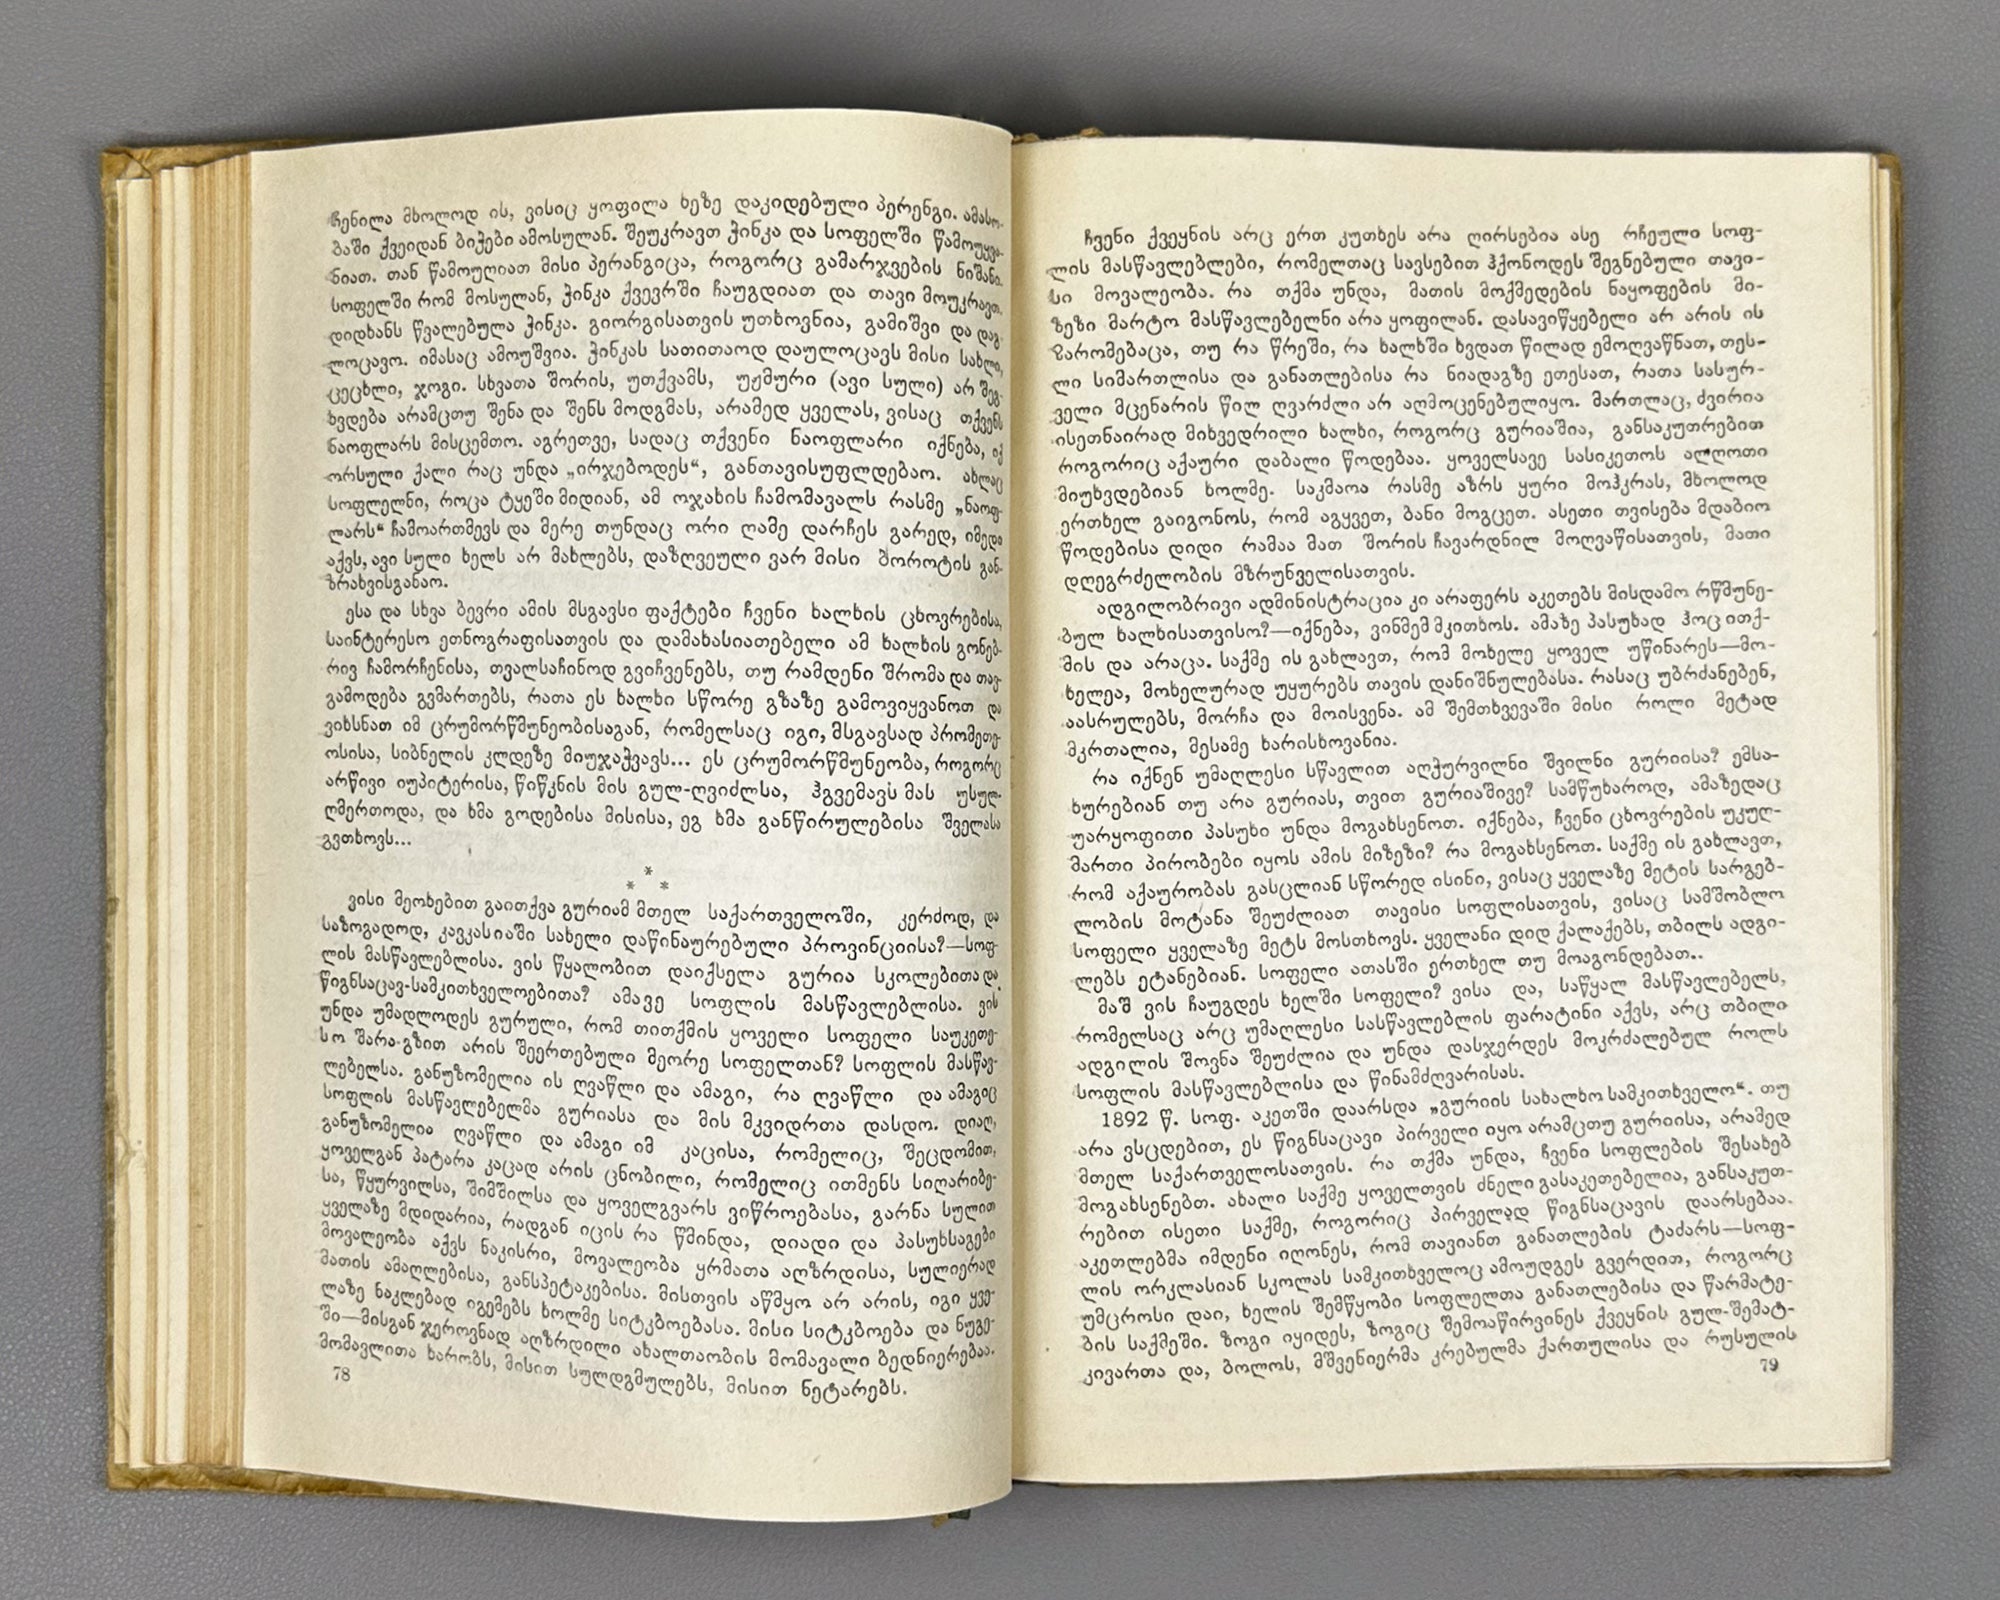 ჩენილა მხოლოდ ის, ვისიც ყოფილა ხეზე დაკიდებული პერენგი. ამასო-
ბაში ქვეიდან ბიჭები ამოსულან. შეუკრავთ ჭინკა და სოფელში წამოუყვა-
ნიათ. თან წამოუღიათ მისი პერანგიცა, როგორც გამარჯვების ნიშანი.
სოფელში რომ მოსულან, ჭინკა ქვევრში ჩაუგდიათ და თავი მოუკრავთ.
დიდხანს წვალებულა ჭინკა. გიორგისათვის უთხოვნია, გამიშვი და დაგ-
ლოცავო. იმასაც ამოუშვია. ჭინკას სათითაოდ დაულოცავს მისი სახლი,
ცეცხლი, ჯოგი. სხვათა შორის, უთქვამს, უჟმური (ავი სული) არ შეგ-
ხვდება არამცთუ შენა და შენს მოდგმას, არამედ ყველას, ვისაც თქვენს
ნაოფლარს მისცემთო. აგრეთვე, სადაც თქვენი ნაოფლარი იქნება, იქ
ორსული ქალი რაც უნდა „ირჯებოდეს“, განთავისუფლდებაო. ახლაც
სოფლელნი, როცა ტყეში მიდიან, ამ ოჯახის ჩამომავალს რასმე „ნაოფ-
ლარს“ ჩამოართმევს და მერე თუნდაც ორი ღამე დარჩეს გარედ, იმედი
აქვს, ავი სული ხელს არ მახლებს, დაზღვეული ვარ მისი ბოროტის გან-
ზრახვისგანაო.
ესა და სხვა ბევრი ამის მსგავსი ფაქტები ჩვენი ხალხის ცხოვრებისა,
საინტერესო ეთნოგრაფისათვის და დამახასიათებელი ამ ხალხის გონებ-
რივ ჩამორჩენისა, თვალსაჩინოდ გვიჩვენებს, თუ რამდენი შრომა და თავ-
გამოდება გვმართებს, რათა ეს ხალხი სწორე გზაზე გამოვიყვანოთ და
ვიხსნათ იმ ცრუმორწმუნეობისაგან, რომელსაც იგი, მსგავსად პრომეთე-
ოსისა, სიბნელის კლდეზე მიუჯაჭვავს... ეს ცრუმორწმუნეობა, როგორც
არწივი იუპიტერისა, წიწკნის მის გულ-ღვიძლსა, ჰგვემავს მას უსულ-
ღმერთოდა, და ხმა გოდებისა მისისა, ეგ ხმა განწირულებისა შველასა
გვთხოვს...
* * *
ვისი მეოხებით გაითქვა გურიამ მთელ საქართველოში, კერძოდ, და
საზოგადოდ, კავკასიაში სახელი დაწინაურებული პროვინციისა?—სოფ-
ლის მასწავლებლისა. ვის წყალობით დაიქსელა გურია სკოლებითა და
წიგნსაცავ-სამკითხველოებითა? ამავე სოფლის მასწავლებლისა. ვის
უნდა უმადლოდეს გურული, რომ თითქმის ყოველი სოფელი საუკეთე-
სო შარა-გზით არის შეერთებული მეორე სოფელთან? სოფლის მასწავ-
ლებელსა. განუზომელია ის ღვაწლი და ამაგი, რა ღვაწლი და ამაგიც
სოფლის მასწავლებელმა გურიასა და მის მკვიდრთა დასდო. დიაღ,
განუზომელია ღვაწლი და ამაგი იმ კაცისა, რომელიც, შეცდომით,
ყოველგან პატარა კაცად არის ცნობილი, რომელიც ითმენს სიღარიბე-
სა, წყურვილსა, შიმშილსა და ყოველგვარს ვიწროებასა, გარნა სულით
ყველაზე მდიდარია, რადგან იცის რა წმინდა, დიადი და პასუხსაგები
მოვალეობა აქვს ნაკისრი, მოვალეობა ყრმათა აღზრდისა, სულიერად
მათის ამაღლებისა, განსპეტაკებისა. მისთვის აწმყო არ არის, იგი ყვე-
ლაზე ნაკლებად იგემებს ხოლმე სიტკბოებასა. მისი სიტკბოება და ნუგე-
ში—მისგან ჯეროვნად აღზრდილი ახალთაობის მომავალი ბედნიერებაა.
მომავლითა ხარობს, მისით სულდგმულებს, მისით ნეტარებს.
78
ჩვენი ქვეყნის არც ერთ კუთხეს არა ღირსებია ასე რჩეული სოფ-
ლის მასწავლებლები, რომელთაც სავსებით ჰქონოდეს შეგნებული თავი-
სი მოვალეობა. რა თქმა უნდა, მათის მოქმედების ნაყოფების მი-
ზეზი მარტო მასწავლებელნი არა ყოფილან. დასავიწყებელი არ არის ის
გარომებაცა, თუ რა წრეში, რა ხალხში ხვდათ წილად ემოღვაწნათ, თეს-
ლი სიმართლისა და განათლებისა რა ნიადაგზე ეთესათ, რათა სასურ-
ველი მცენარის წილ ღვარძლი არ აღმოცენებულიყო. მართლაც, ძვირია
ისეთნაირად მიხვედრილი ხალხი, როგორც გურიაშია, განსაკუთრებით
როგორიც აქაური დაბალი წოდებაა. ყოველსავე სასიკეთოს ალღოთი
მიუხვდებიან ხოლმე. საკმაოა რასმე აზრს ყური მოჰკრას, მხოლოდ
ერთხელ გაიგონოს, რომ აგყვეთ, ბანი მოგცეთ. ასეთი თვისება მდაბიო
წოდებისა დიდი რამაა მათ შორის ჩავარდნილ მოღვაწისათვის, მათი
დღეგრძელობის მზრუნველისათვის.
ადგილობრივი ადმინისტრაცია კი არაფერს აკეთებს მისდამო რწმუნე-
ბულ ხალხისათვისო?—იქნება, ვინმემ მკითხოს. ამაზე პასუხად ჰოც ითქ-
მის და არაცა. საქმე ის გახლავთ, რომ მოხელე ყოველ უწინარეს—მო-
ხელეა, მოხელურად უყურებს თავის დანიშნულებასა. რასაც უბრძანებენ,
აასრულებს, მორჩა და მოისვენა. ამ შემთხვევაში მისი როლი მეტად
მკრთალია, მესამე ხარისხოვანია.
რა იქნენ უმაღლესი სწავლით აღჭურვილნი შვილნი გურიისა? ემსა-
ხურებიან თუ არა გურიას, თვით გურიაშივე? სამწუხაროდ, ამაზედაც
უარყოფითი პასუხი უნდა მოგახსენოთ. იქნება, ჩვენი ცხოვრების უკულ-
მართი პირობები იყოს ამის მიზეზი? რა მოგახსენოთ. საქმე ის გახლავთ,
რომ აქაურობას გასცლიან სწორედ ისინი, ვისაც ყველაზე მეტის სარგებ-
ლობის მოტანა შეუძლიათ თავისი სოფლისათვის, ვისაც სამშობლო
სოფელი ყველაზე მეტს მოსთხოვს. ყველანი დიდ ქალაქებს, თბილს ადგი-
ლებს ეტანებიან. სოფელი ათასში ერთხელ თუ მოაგონდებათ..
მაშ ვის ჩაუგდეს ხელში სოფელი? ვისა და, საწყალ მასწავლებელს,
რომელსაც არც უმაღლესი სასწავლებლის ფარატინი აქვს, არც თბილი
ადგილის შოვნა შეუძლია და უნდა დასჯერდეს მოკრძალებულ როლს
სოფლის მასწავლებლისა და წინამძღვარისას.
1892 წ. სოფ. აკეთში დაარსდა „გურიის სახალხო სამკითხველო“. თუ
არა ვსცდებით, ეს წიგნსაცავი პირველი იყო არამცთუ გურიისა, არამედ
მთელ საქართველოსათვის. რა თქმა უნდა, ჩვენი სოფლების შესახებ
მოგახსენებთ. ახალი საქმე ყოველთვის ძნელი გასაკეთებელია, განსაკუთ-
რებით ისეთი საქმე, როგორიც პირველად წიგნსაცავის დაარსებაა.
აკეთლებმა იმდენი იღონეს, რომ თავიანთ განათლების ტაძარს—სოფ-
ლის ორკლასიან სკოლას სამკითხველოც ამოუდგეს გვერდით, როგორც
უმცროსი დაი, ხელის შემწყობი სოფლელთა განათლებისა და წარმატე-
ბის საქმეში. ზოგი იყიდეს, ზოგიც შემოაწირვინეს ქვეყნის გულ-შემატ-
კივართა და, ბოლოს, მშვენიერმა კრებულმა ქართულისა და რუსულის
79